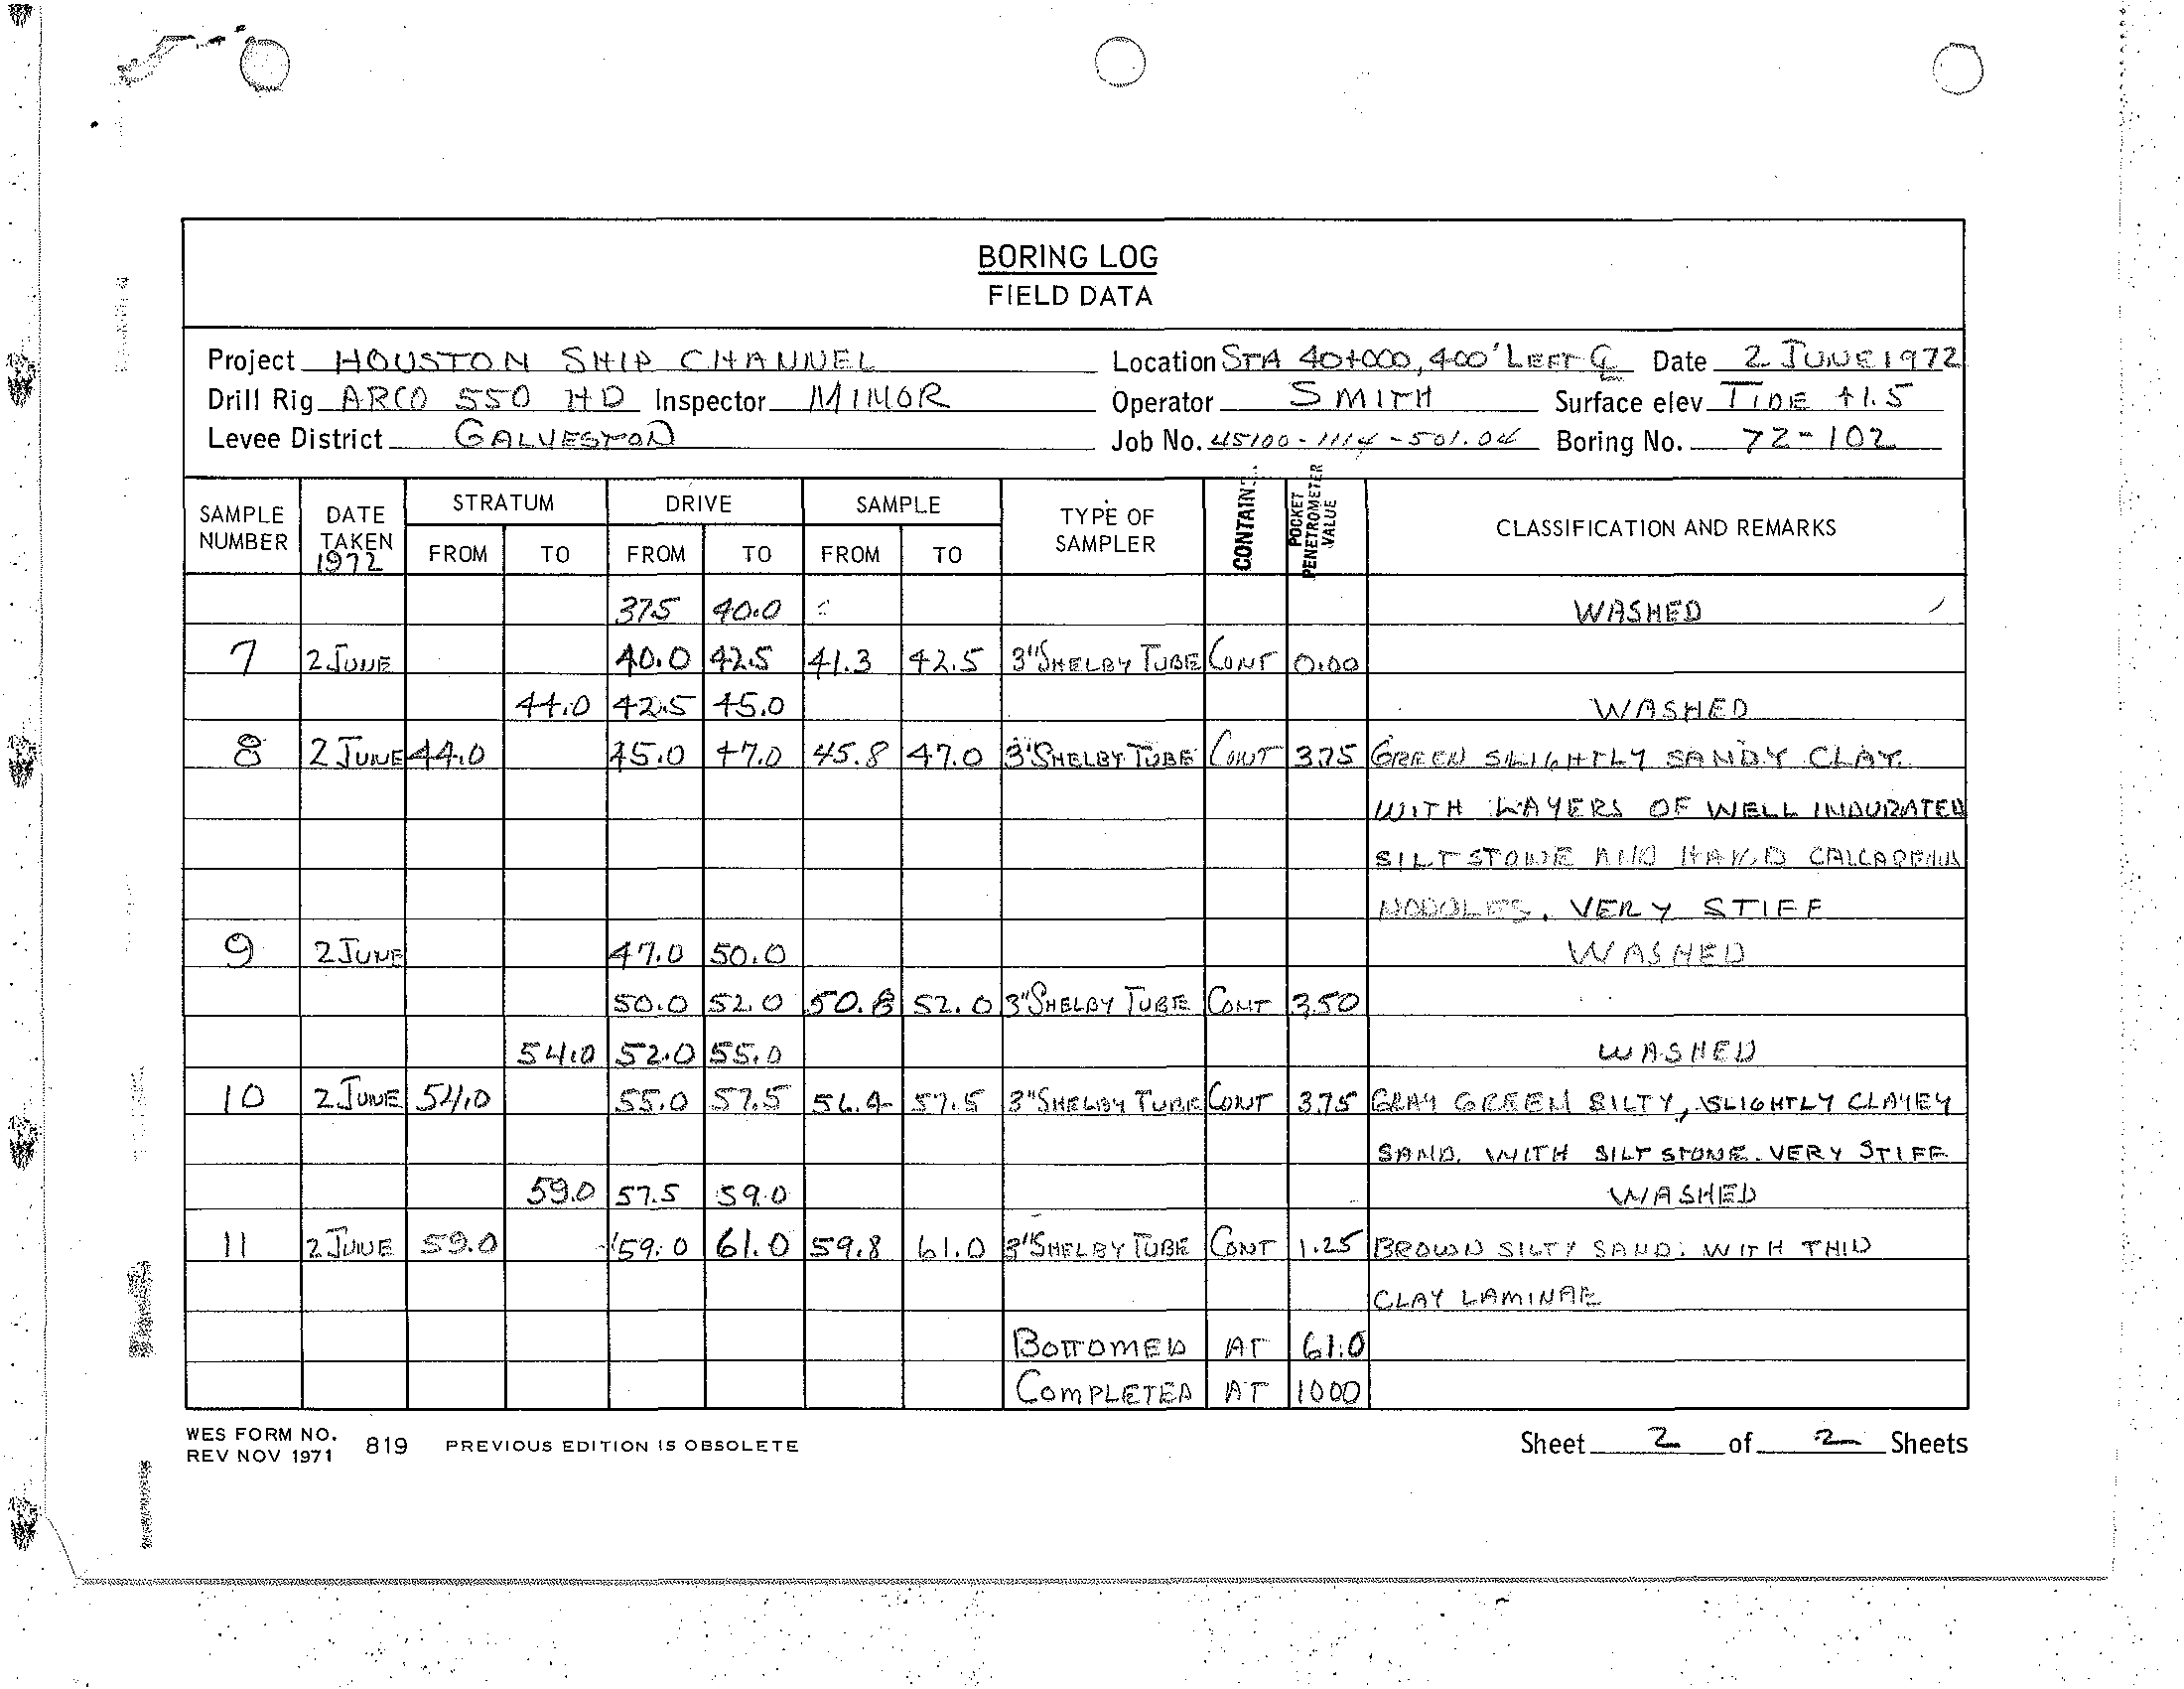 BORING LOG
FIELD DATA
Project HOUSTON SHIP CHANNEL Location STA 40+000, 400' LEFT ℄ Date 2 JUNE 1972
Drill Rig ARCO 550 HD Inspector MINOR Operator SMITH Surface elev TIDE +1.5
Levee District GALVESTON Job No. 45100-1114-501.04 Boring No. 72-102
SAMPLE NUMBER DATE TAKEN 1972 STRATUM FROM TO DRIVE FROM TO SAMPLE FROM TO TYPE OF SAMPLER CONTAIN. POCKET PENETROMETER VALUE CLASSIFICATION AND REMARKS
37.5 40.0 WASHED
7 2 JUNE 40.0 42.5 41.3 42.5 3" SHELBY TUBE CONT 0.00
44.0 42.5 45.0 WASHED
8 2 JUNE 44.0 45.0 47.0 45.8 47.0 3" SHELBY TUBE CONT 3.75 GREEN SLIGHTLY SANDY CLAY
WITH LAYERS OF WELL INDURATED
SILTSTONE AND HARD CALCAREOUS
NODULES. VERY STIFF
9 2 JUNE 47.0 50.0 WASHED
50.0 52.0 50.8 52.0 3" SHELBY TUBE CONT 3.50
54.0 52.0 55.0 WASHED
10 2 JUNE 54.0 55.0 57.5 56.4 57.5 3" SHELBY TUBE CONT 3.75 GRAY GREEN SILTY, SLIGHTLY CLAYEY
SAND. WITH SILT STONE. VERY STIFF
59.0 57.5 59.0 WASHED
11 2 JUNE 59.0 59.0 61.0 59.8 61.0 3" SHELBY TUBE CONT 1.25 BROWN SILTY SAND: WITH THIN
CLAY LAMINAE
BOTTOMED AT 61.0
COMPLETED AT 1000
WES FORM NO. 819 PREVIOUS EDITION IS OBSOLETE Sheet 2 of 2 Sheets
REV NOV 1971